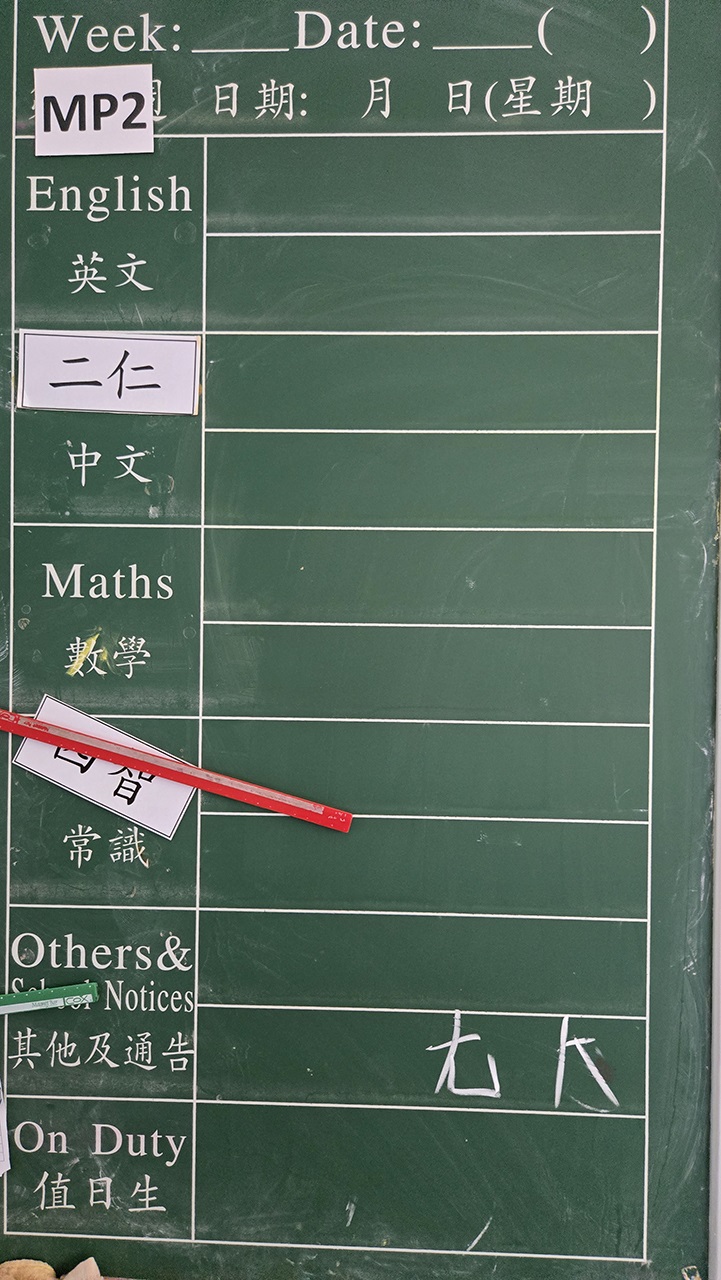 Week: ____ Date: ____ (     )
MP2 週 日期:   月   日(星期   )
English
英文
二仁
中文
Maths
數學
四智
常識
Others&
School Notices
其他及通告
On Duty
值日生